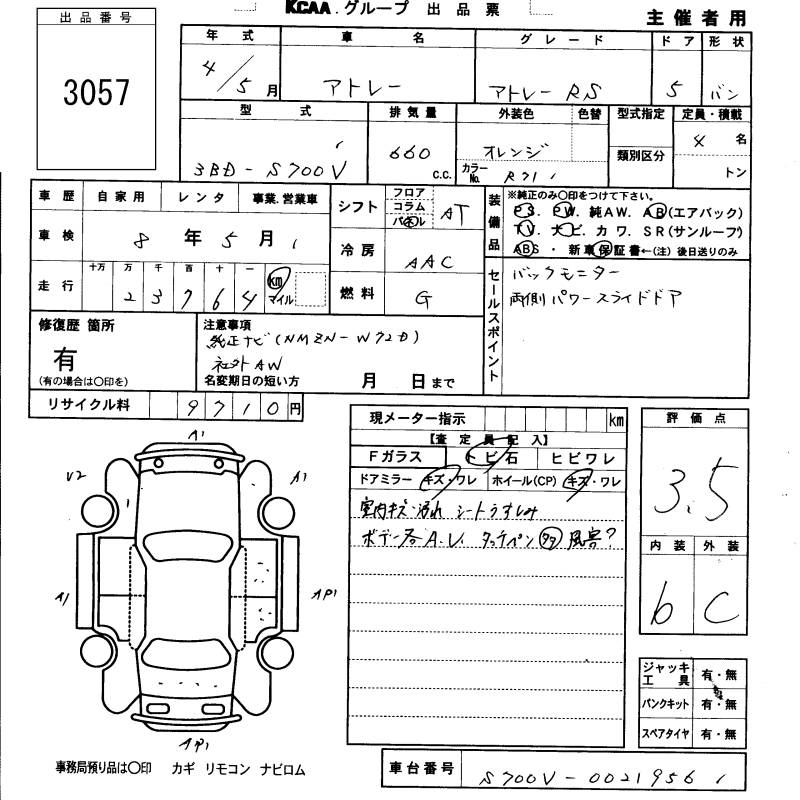 KCAA.グループ 出品票
主催者用
出品番号
3057
年式 車名 グレード ドア 形状
4/5月 アトレー アトレー RS 5 バン
型式 排気量 外装色 色替 型式指定 定員・積載
3BD-S700V 660 c.c. オレンジ 類別区分 4 名
カラーNo. R71 トン
車歴 自家用 レンタ 事業.営業車
シフト フロア コラム パネル AT
装備品 ※純正のみ○印をつけて下さい。
PS. PW. 純AW. AB(エアバック)
TV. ナビ. カワ. SR(サンルーフ)
ABS ・ 新車保証書←(注)後日送りのみ
車検 8年5月
冷房 AAC
走行 十万 万 千 百 十 一
23764 km マイル
燃料 G
セールスポイント バックモニター
両側パワースライドドア
修復歴 箇所
有
(有の場合は○印を)
注意事項
純正ナビ(NMZN-W72D)
社外AW
名変期日の短い方 月 日まで
リサイクル料 9710円
現メーター指示 km
【査定員記入】
Fガラス トビ石 ヒビワレ
ドアミラー キズ・ワレ ホイール(CP) キズ・ワレ
室内キズ・汚れ シートうすしみ
ボデー各A.U. タッチペン
評価点
3.5
内装 外装
b C
A1
U2 A1
A1 AP1
AP1
ジャッキ工具 有・無
パンクキット 有・無
スペアタイヤ 有・無
事務局預り品は○印 カギ リモコン ナビロム
車台番号 S700V-0021956